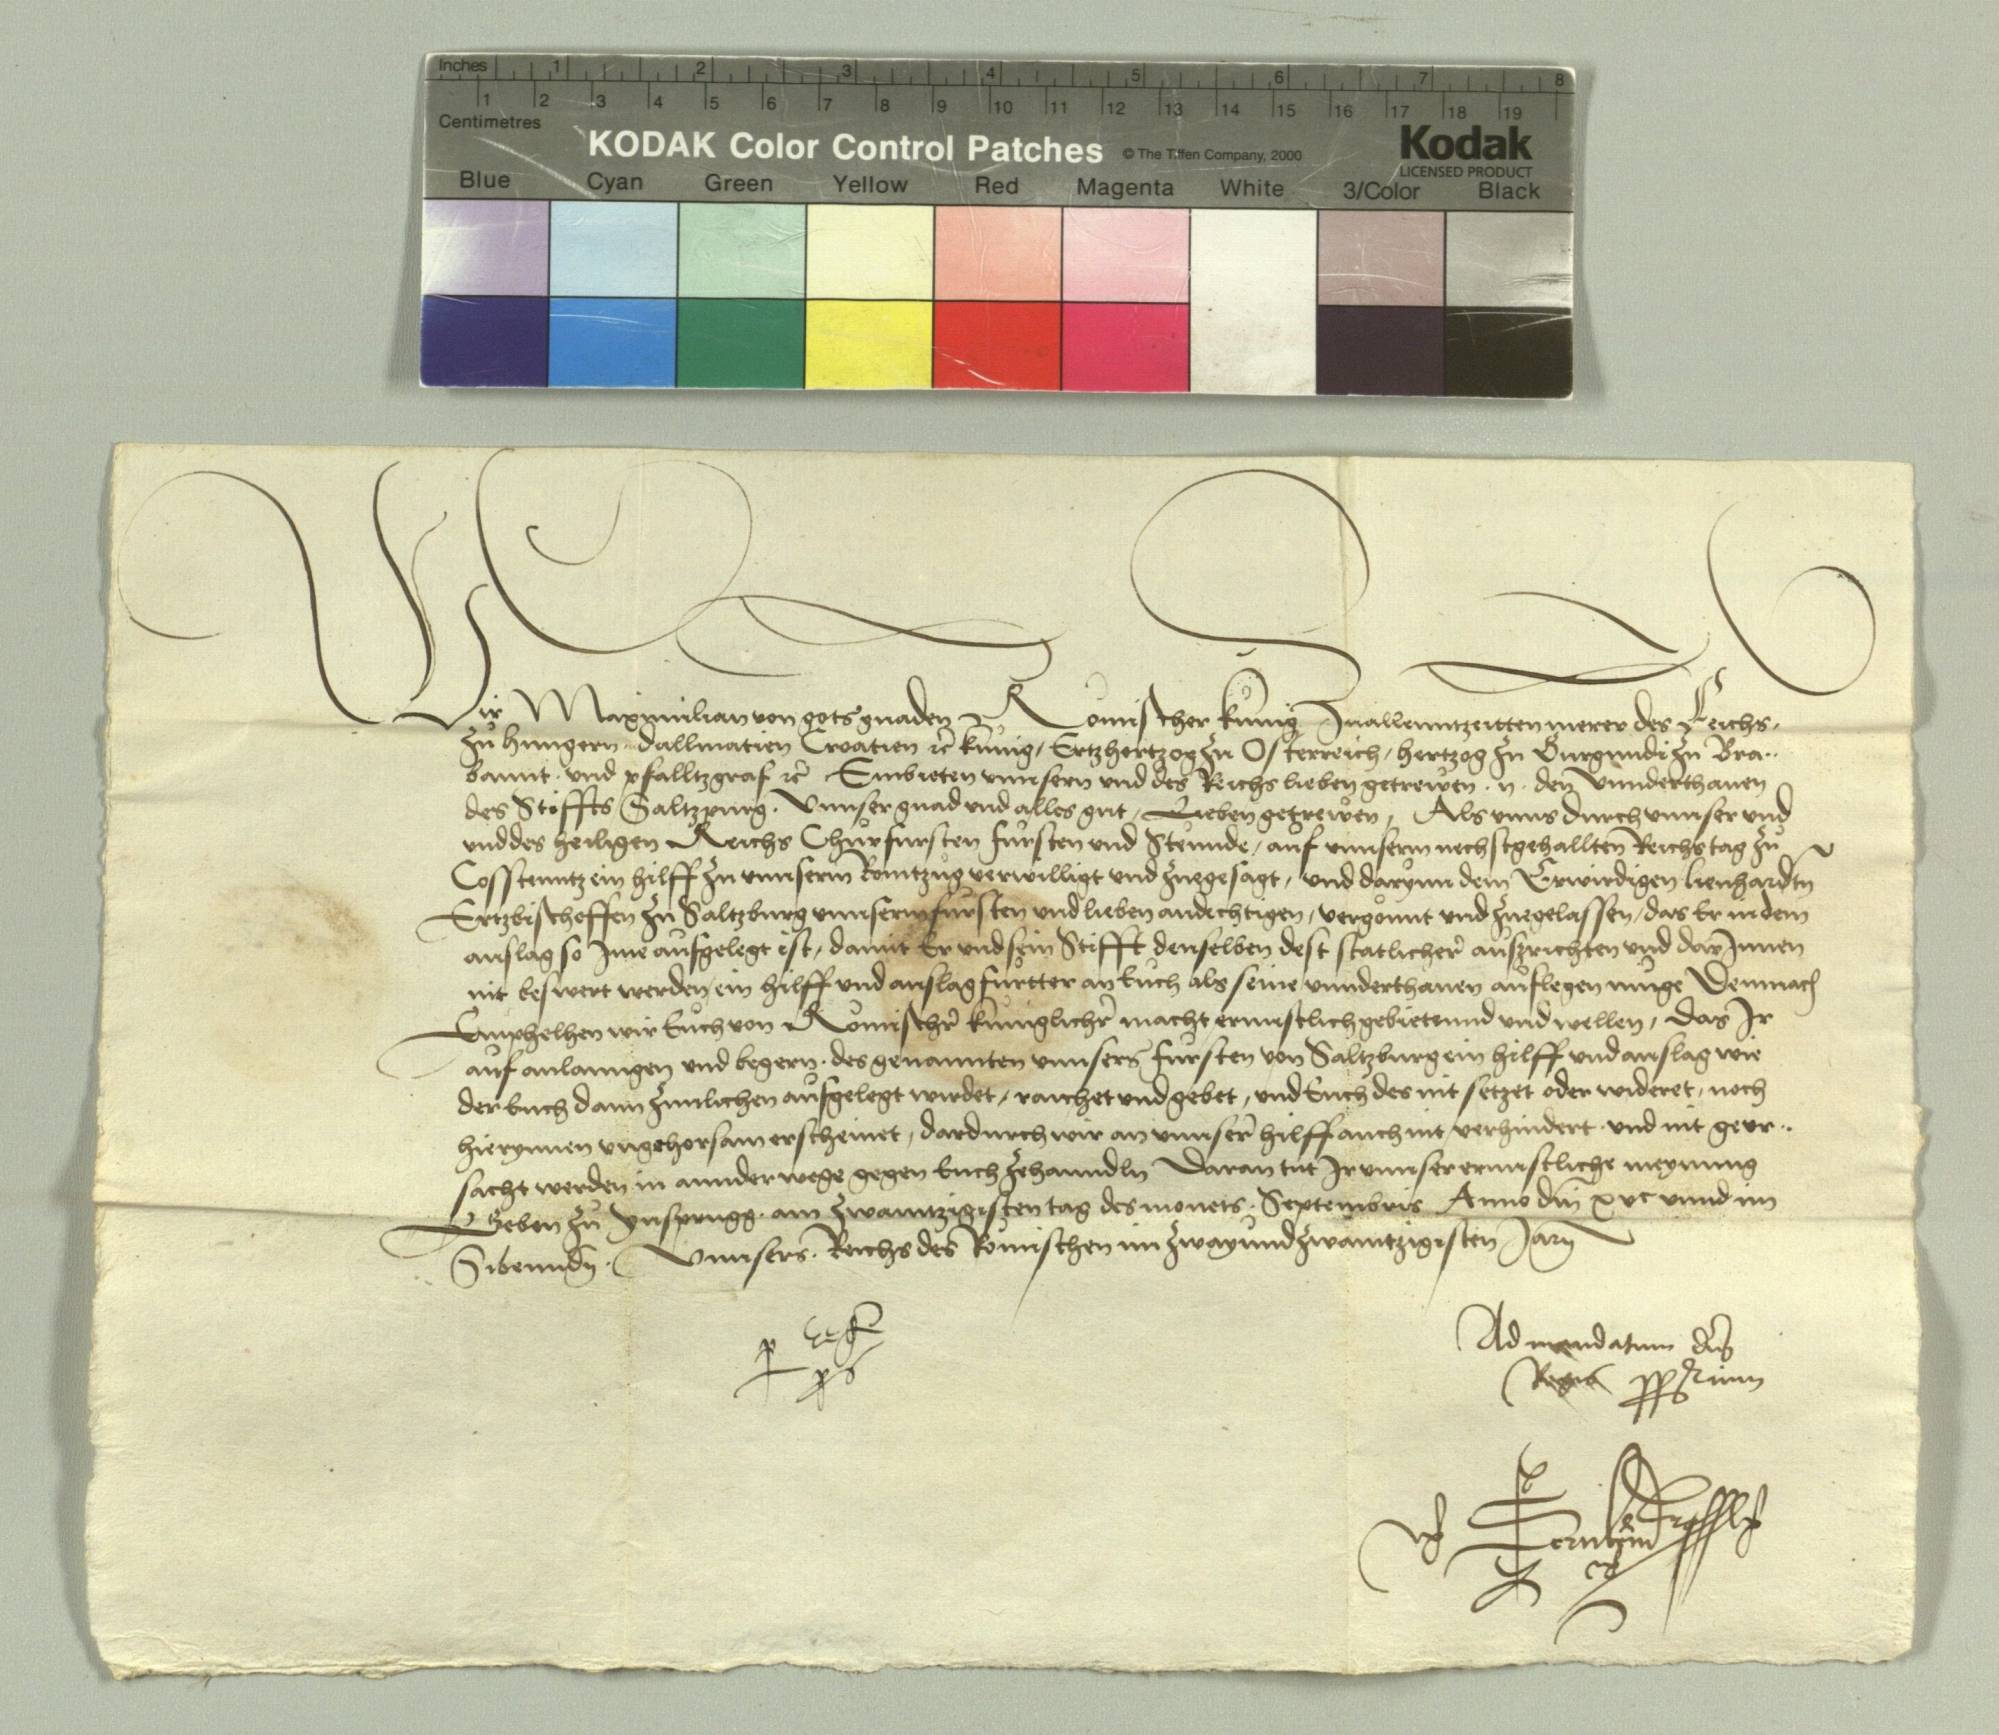 Inches 1 2 3 4 5 6 7 8
1 2 3 4 5 6 7 8 9 10 11 12 13 14 15 16 17 18 19
Centimetres
KODAK Color Control Patches © The Tiffen Company, 2000 Kodak
LICENSED PRODUCT
Blue Cyan Green Yellow Red Magenta White 3/Color Black
Wir Maximilian von gots gnaden Romischer kunig Zuallenntzeitten merer des Reichs,
zu Hungern Dallmatien Croatien rc kunig, Ertzhertzog zu Osterreich, Hertzog zu Burgundi zu Bra..
bannt und pfalltzgraf rc Embieten unnsern und des Reichs lieben getrewen . n . den unnderthanen
des Stiffts Saltzpurg. Unnser gnad und alles gut, Lieben getrewen, Als unns durch unnser und
unnd des heiligen Reichs Churfursten fursten und Stennde, auf unnserm nechstgehallten Reichstag zu
Cosstenntz ein hilff zu unnserm Romtzug verwilligt und zuegesagt, und darynn dem Erwirdigen lienhardtn
Ertzbischoffen zu Saltzburg unnserm fursten und lieben andechtigen, vergonnt und zuegelassen, das Er in dem
anslag so Ime aufgelegt ist, damit Er und sein Stifft denselben dest statlicher auszrichten und darInnen
nit beswert werden, ein hilff und anslag furtter an Euch als seine unnderthanen auflegen muge Demnach
Emphelhen wir Euch von Romischr kuniglichr macht ernnstlich gebietennd und wellen, das Ir
auf anlanngen und begern des genannten unnsers fursten von Saltzburg ein hilff und anslag wie
der Euch dann zimlichen aufgelegt wirdet, raichet und gebet, und Euch des nit setzet oder wideret, noch
hierynnen ungehorsam erscheinet, dardurch wir an unnser hilff auch nit verhindert und nit geur..
sacht werden in annder wege gegen Euch zehanndln Daran tut Ir unnser ernnstliche meynung
Geben zu Ynsprugg am zwaintzigisten tag des monets Septembris Anno dni xvc unnd im
Sibenndn. Unnsers Reichs des Romischen im zwayundzwaintzigisten Jarn
p
Ad mandatum dni
Regis